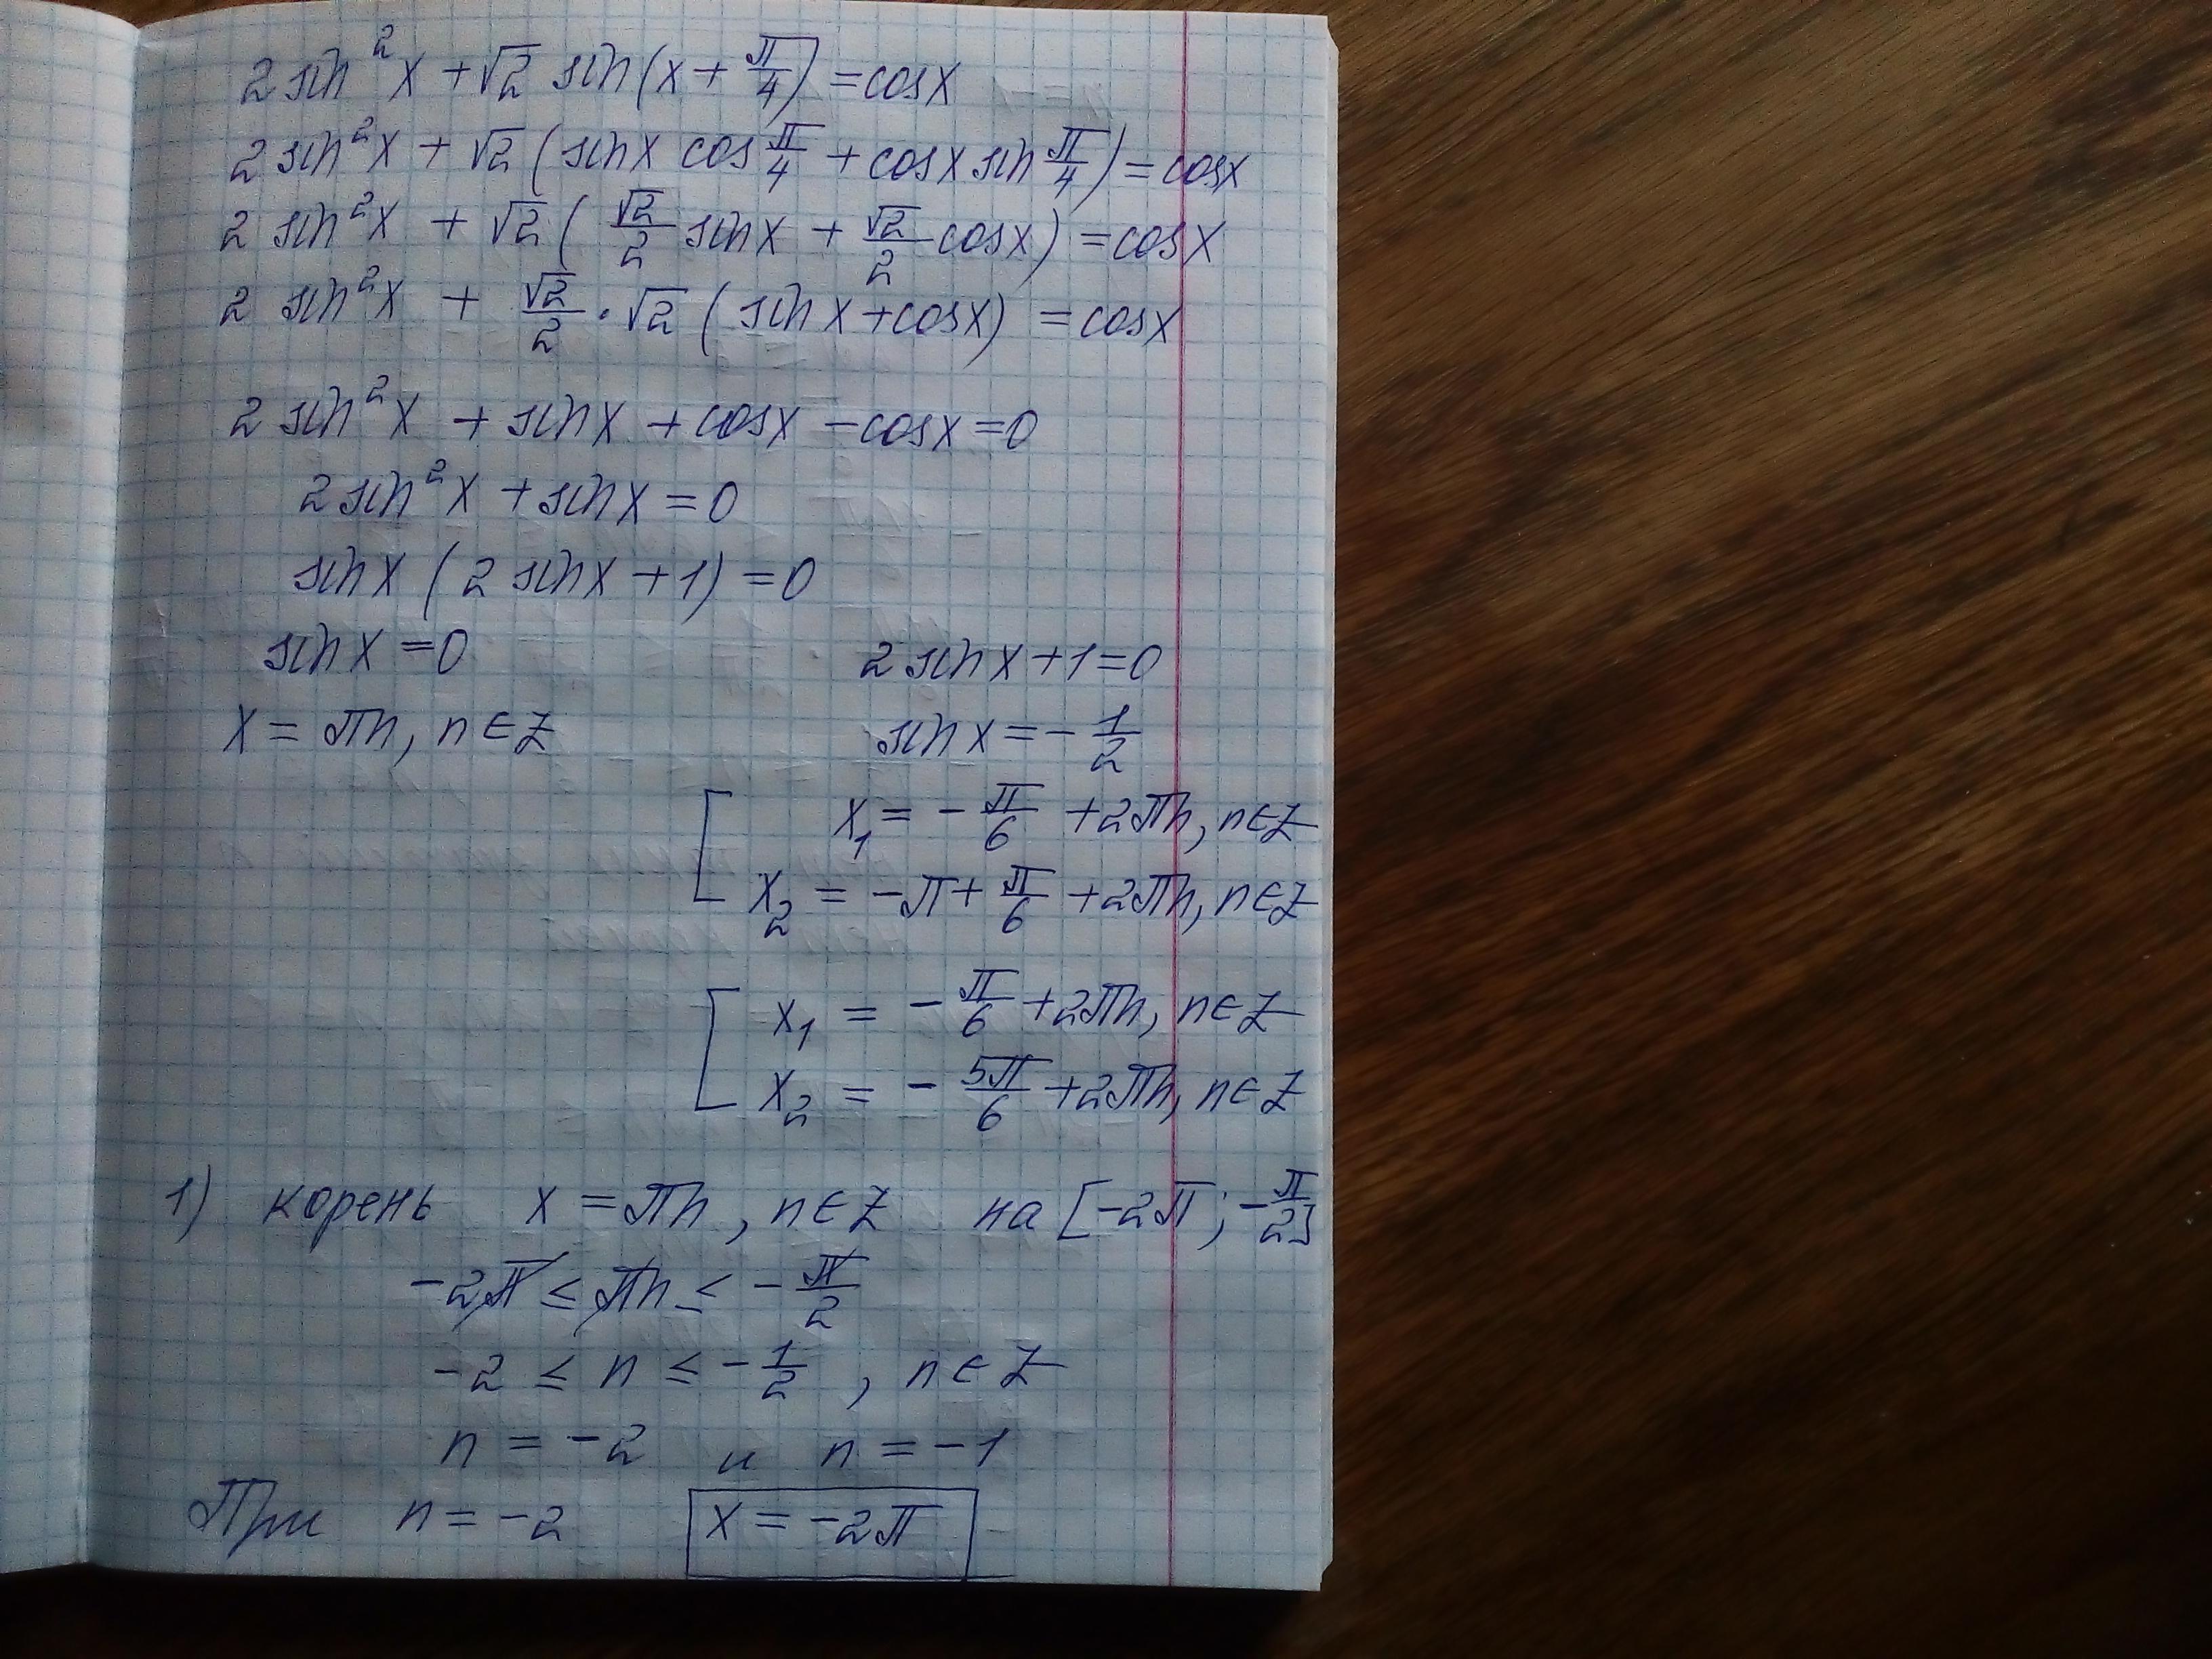 2 sin²x + √2 sin(x + π/4) = cosx
2 sin²x + √2 (sinx cos π/4 + cosx sin π/4) = cosx
2 sin²x + √2 (√2/2 sinx + √2/2 cosx) = cosx
2 sin²x + √2/2 · √2 (sinx + cosx) = cosx
2 sin²x + sinx + cosx - cosx = 0
2 sin²x + sinx = 0
sinx (2 sinx + 1) = 0
sinx = 0 2 sinx + 1 = 0
x = πn, n∈Z sinx = - 1/2
[ x₁ = - π/6 + 2πn, n∈Z
x₂ = -π + π/6 + 2πn, n∈Z
[ x₁ = - π/6 + 2πn, n∈Z
x₂ = - 5π/6 + 2πn, n∈Z
1) корень x = πn, n∈Z на [-2π; -π/2]
-2π ≤ πn ≤ - π/2
-2 ≤ n ≤ - 1/2, n∈Z
n = -2 и n = -1
При n = -2 x = -2π